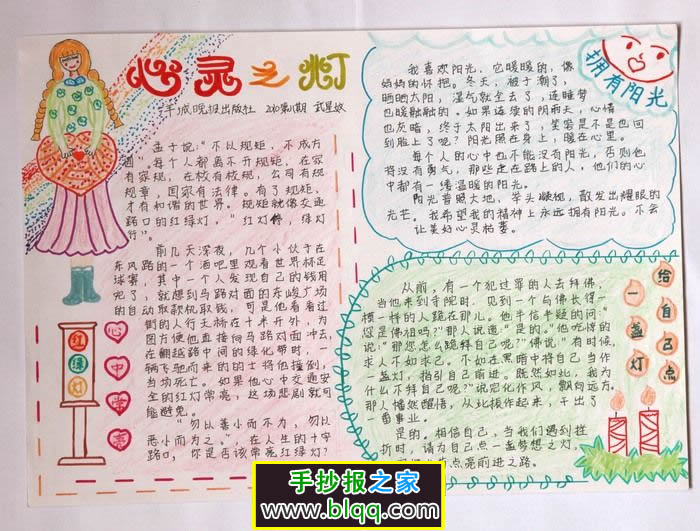 心灵之灯
羊城晚报出版社 2010第1期 武星妤
孟子说:“不以规矩,不成方
圆”,每个人都离不开规矩,在家
有家规,在校有校规,公司有规
规章,国家有法律。有了规矩,
才有和谐的世界。规矩就像交通
路口的红绿灯,“红灯停,绿灯
行”。
前几天深夜,几个小伙子在
东风路的一个酒吧里观看世界杯足
球赛,其中一个人发现自己的钱用
完了,就想到马路对面的东峻广场
的自动取款机取钱,可是他看看过
街的人行天桥在十米开外,为
图方便他直接向马路对面冲去,
在翻越路中间的绿化带时,一
辆飞驰而来的的士将他撞倒,
当场死亡。如果他心中交通安
全的红灯常亮,这场悲剧就可
能避免。
“勿以善小而不为,勿以
恶小而为之。”在人生的十字
路口,你是否该常亮红绿灯?
红
绿
灯
心
中
常
亮
拥有阳光
我喜欢阳光,它暖暖的,像
妈妈的怀抱。冬天,被子潮了,
晒晒太阳,湿气就全去了,连睡梦
也暖融融的。如果连续的阴雨天,心情
也灰暗,终于太阳出来了,笑容是不是也回
到脸上了呢?阳光照在身上,暖在心里。
每个人的心中也不能没有阳光,否则他
将没有勇气,那些走在路上的人,他们的心
中都有一缕温暖的阳光。
阳光普照大地,举头凝视,散发出耀眼的
光芒。我希望我的精神上永远拥有阳光。不会
让美好心灵枯萎。
给自己点
一盏灯
从前,有一个犯过罪的人去拜佛,
当他来到寺院时,见到一个与佛长得一
模一样的人跪在那儿。他半信半疑的问:“
您是佛祖吗?”那人说道:“是的。”他吃惊的
说:“那您怎么跪拜自己呢?”佛说:“有时候,
求人不如求己。不如在黑暗中将自己当作
一盏灯,指引自己前进。既然如此,我为
什么不拜自己呢?”说完化作风,飘向远方。
那人幡然醒悟,从此振作起来,干出了
一番事业。
是的。相信自己,当我们遇到挫
折时,请为自己点一盏梦想之灯,
点亮前进之路。
手抄报之家
www.blqq.com